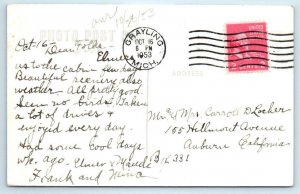 Oct 16
Dear Folks
Elmer
us to the cabin few days
Beautiful scenery also
weather. All pretty good
Seen no birds. Taken
a lot of drives &
enjoyed every day.
Had some cool days
wk. ago. Elmer & Maude
Frank and Nina
PHOTO POST
ADDRESS
GRAYLING
OCT 16
6 PM
1953
MICH.
Mr & Mrs Carroll D Locher
155 Hillmont Avenue
Auburn California
Box 331